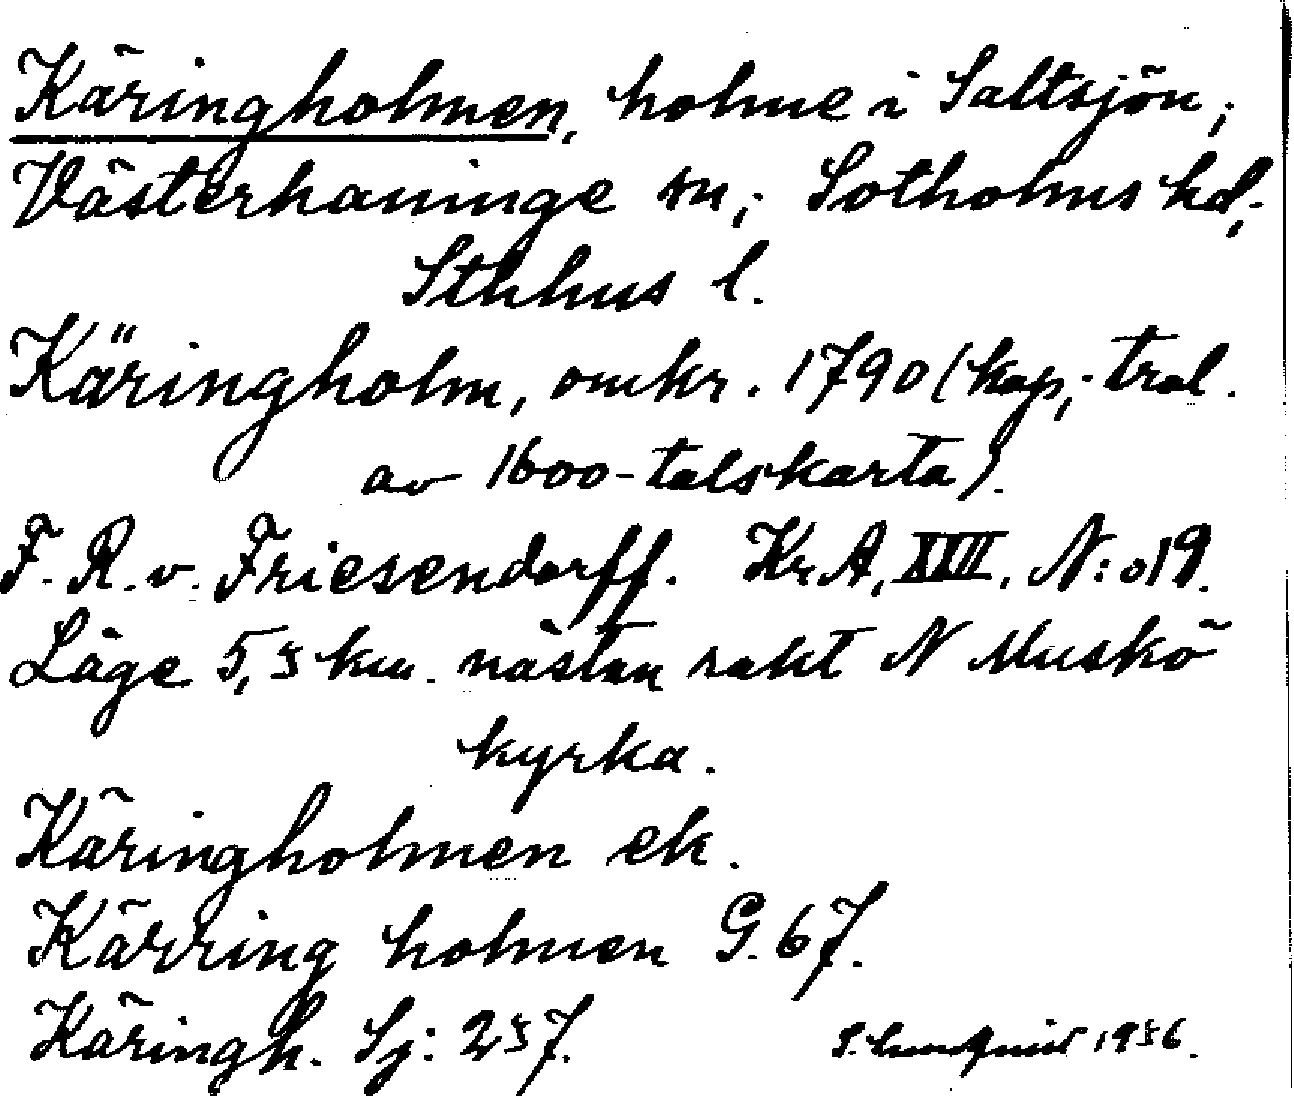 Käringholmen, holme i Saltsjön;
Västerhaninge sn; Sotholms hd;
Sthlms l.
Käringholm, omkr. 1790 (kop; trol.
av 1600-talskarta).
F. R. v. Friesendorff. Kr. A, XXII, N:o 19.
Läge 5,5 km. nästan rakt N Muskö
kyrka.
Käringholmen ek.
Kärring holmen G. 67.
Käringh. Sj: 257.
S. Lundqvist 1956.